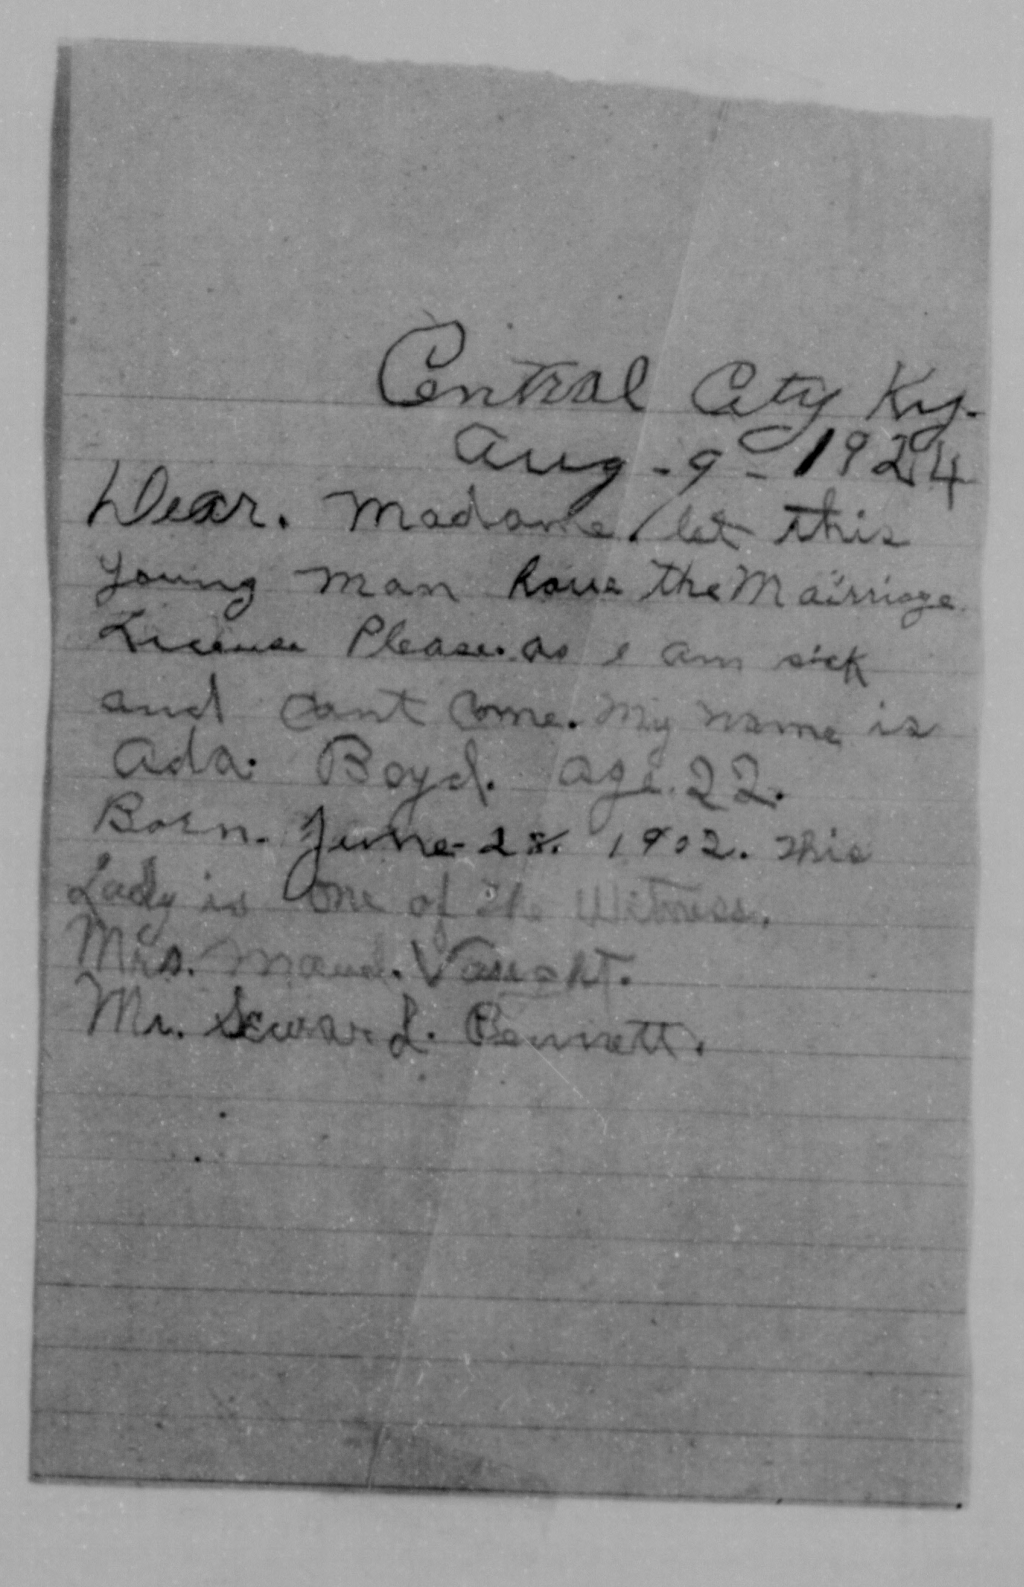 Central City Ky.
Aug-9-1924
Dear. Madame, let this
young man have the Mairriage
License Please. as I am sick
and cant come. My name is
Ada. Boyd. age. 22.
Born. June-28. 1902. This
Lady is one of the Witness.
Mrs. Maud. Vaught.
Mr. Seward. Bennett.